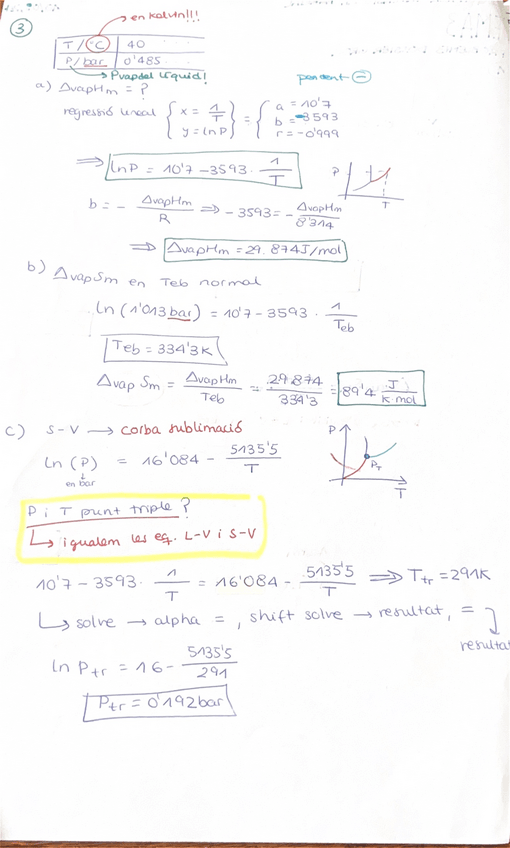 en kelvin!!!
3
T/°C | 40
P/bar | 0'485
Pvap del líquid!
pendent ⊖
a) ΔvapHm = ?
regressió lineal { x = 1/T y = ln P } = { a = 10'7 b = -3593 r = -0'999
⇒ ln P = 10'7 - 3593 · 1/T
P
T
b = - ΔvapHm/R ⇒ -3593 = - ΔvapHm/8'314
⇒ ΔvapHm = 29.874 J/mol
b) ΔvapSm en Teb normal
ln (1'013 bar) = 10'7 - 3593 · 1/Teb
Teb = 334'3 K
ΔvapSm = ΔvapHm/Teb = 29.874/334'3 = 89'4 J/K·mol
c) S-V → corba sublimació
ln (P) = 16'084 - 5135'5/T
en bar
P
PT
T
P i T punt triple?
↳ igualem les eq. L-V i S-V
10'7 - 3593 · 1/T = 16'084 - 5135'5/T ⇒ Ttr = 291K
↳ solve → alpha = , shift solve → resultat, =
resulta
ln Ptr = 16 - 5135'5/291
Ptr = 0'192 bar